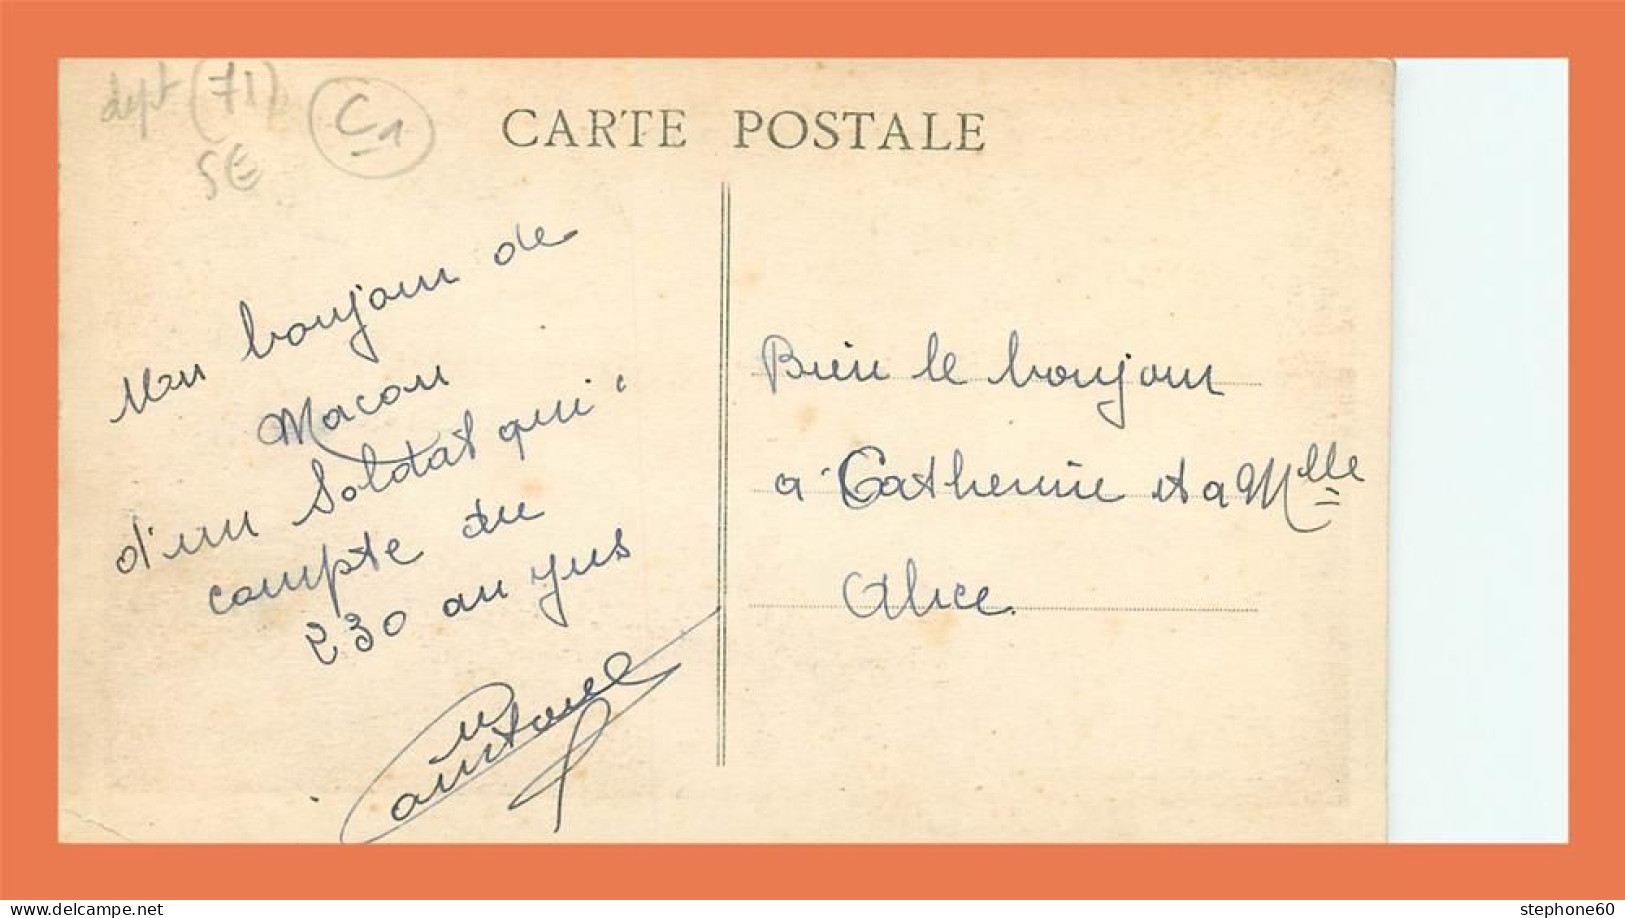 dept (71)
SE
C1
CARTE POSTALE
Mon bonjour de
Macon
d'un Soldat qui
compte du
230 au jus
Bien le bonjour
a Catherine et a Mlle
Alice.
delcampe.net
stephone60